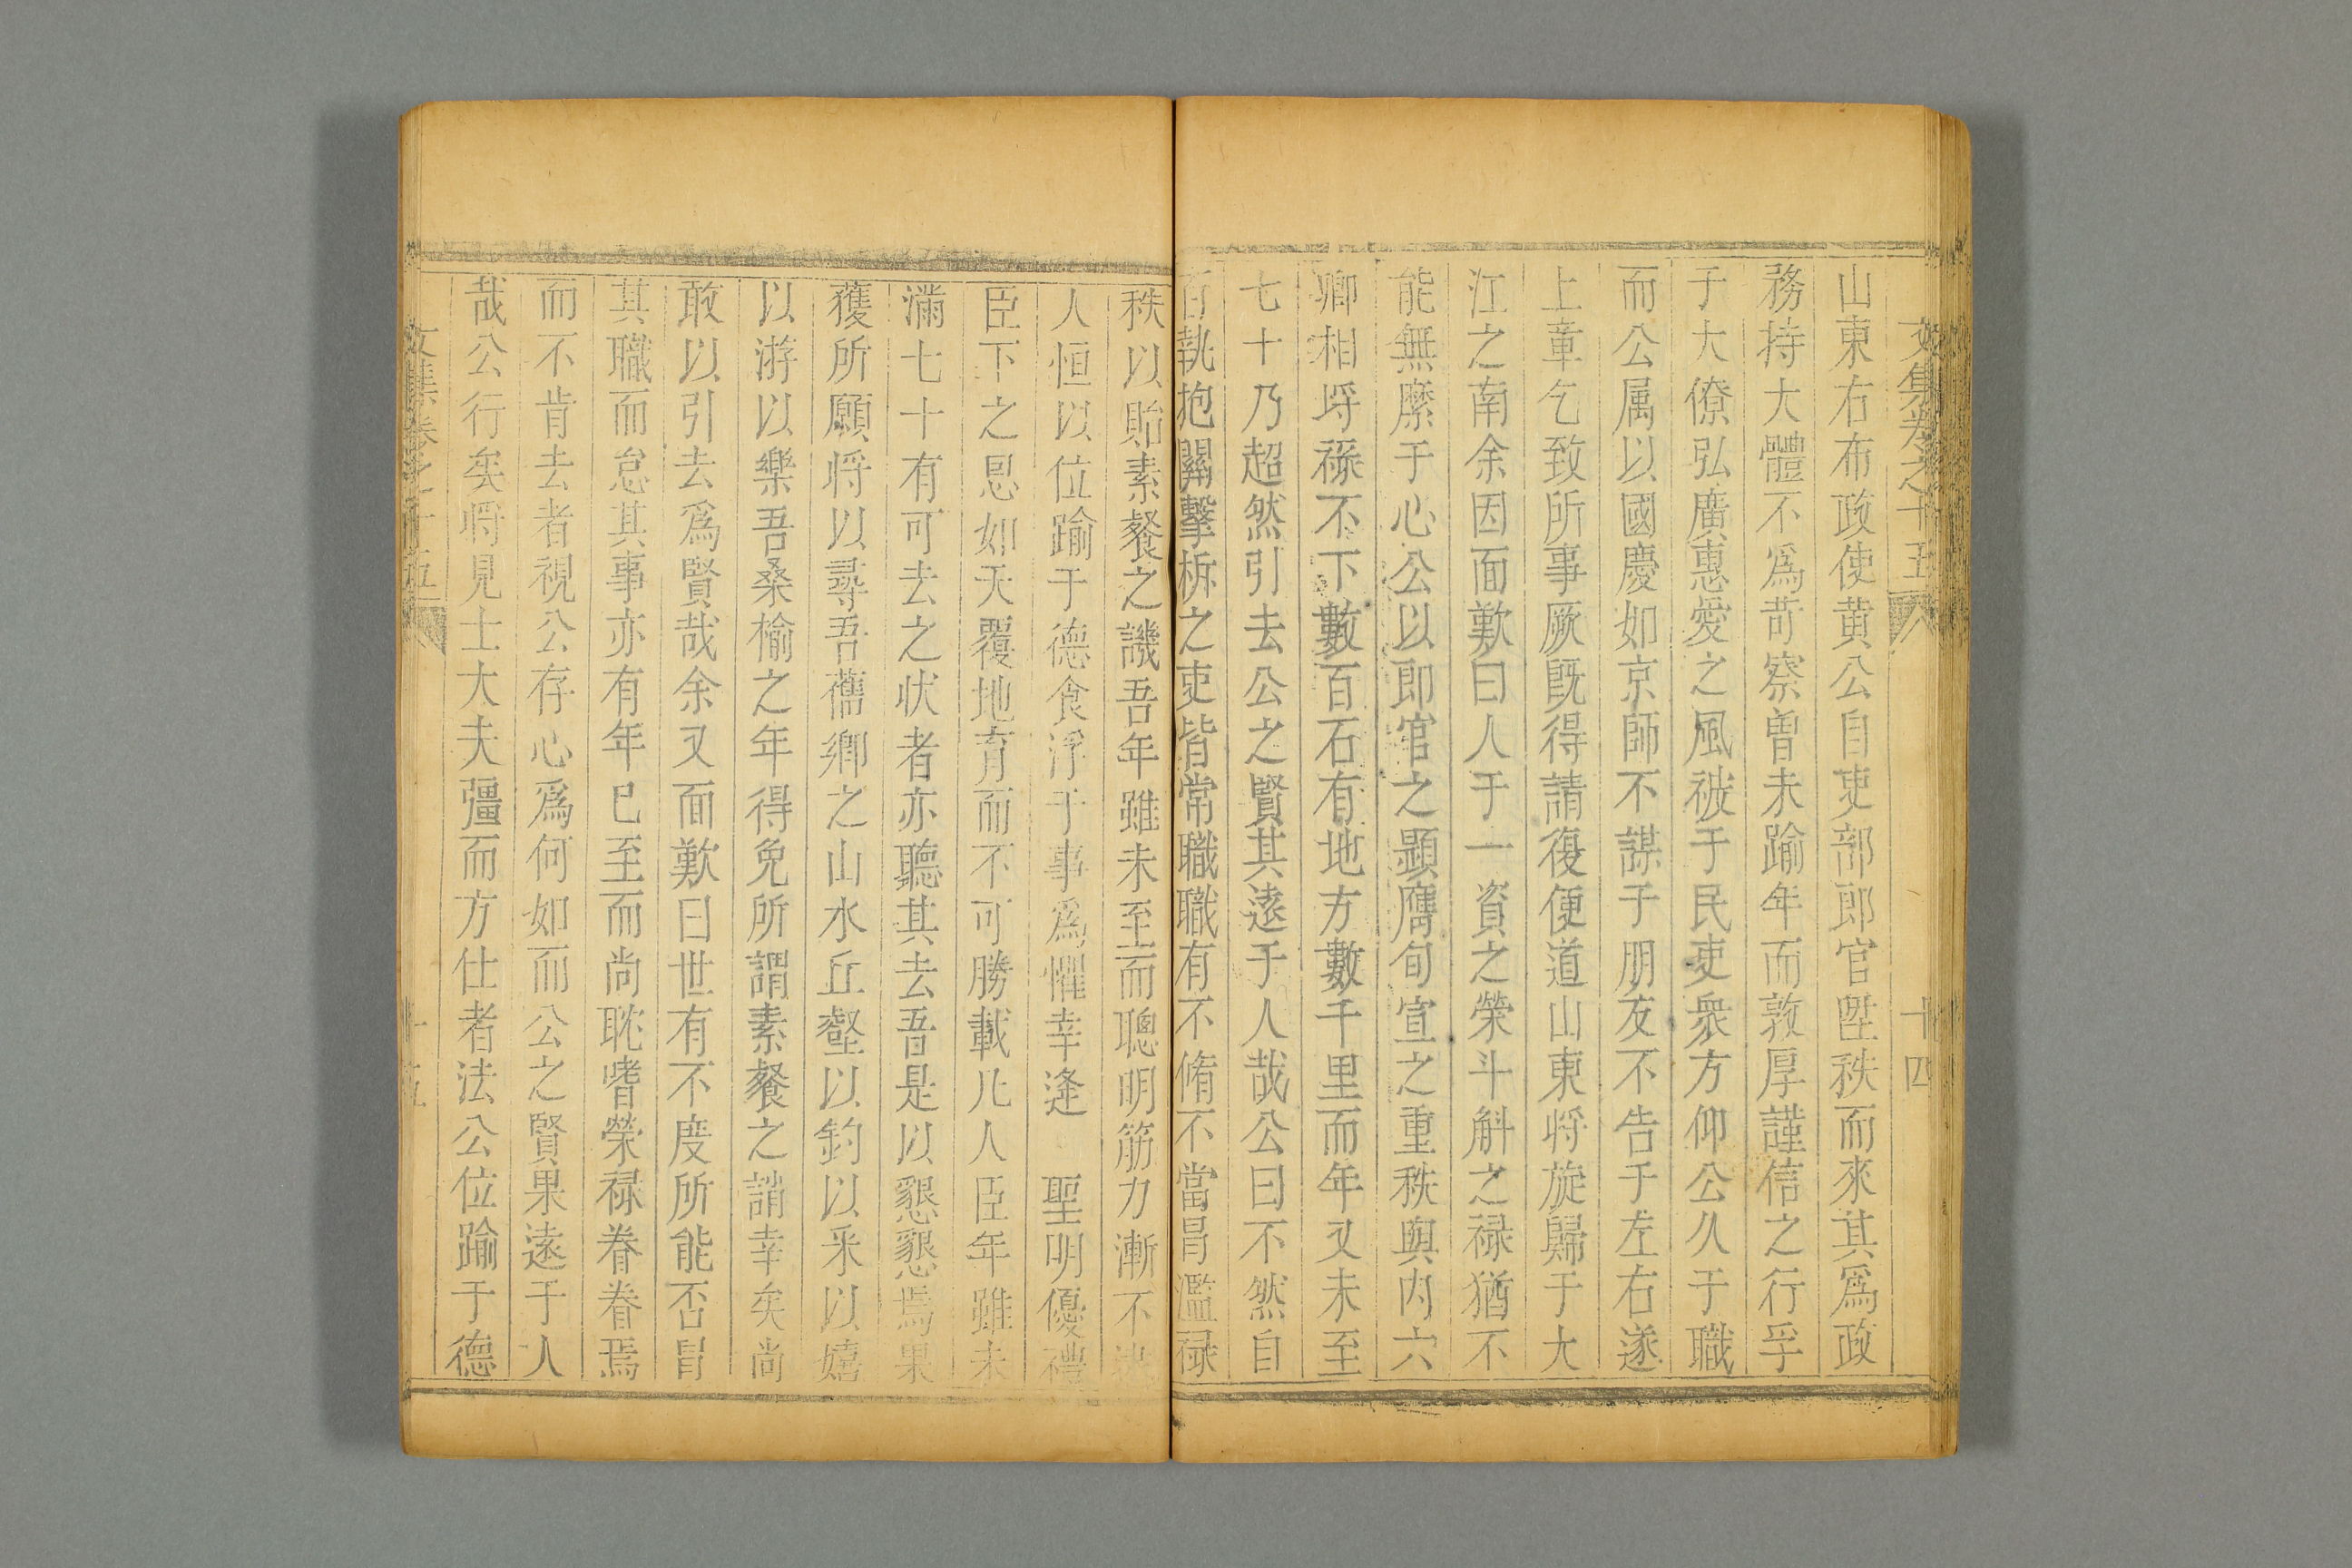 文集卷之十五 十四
山東右布政使黄公自吏部郎官陞秩而來其爲政
務持大體不爲苛察曽未踰年而敦厚謹信之行孚
于大僚弘廣惠愛之風被于民吏衆方仰公久于職
而公属以國慶如京師不謀于朋友不告于左右遂
上章乞致所事厥既得請復便道山東将旋歸于大
江之南余因面歎曰人于一資之榮斗斛之禄猶不
能無縻于心公以即官之顕膺旬宣之重秩與内六
卿相埒禄不下數百石有地方數千里而年又未至
七十乃超然引去公之賢其逺于人哉公曰不然自
百執抱關擊柝之吏皆常職職有不脩不當冐濫禄
秩以貽素餐之譏吾年雖未至而聰明筋力漸不
人恒以位踰于德食浮于事爲懼幸逢 聖明優禮
臣下之恩如天覆地育而不可勝載凡人臣年雖未
滿七十有可去之状者亦聽其去吾是以懇懇焉果
獲所願将以尋吾舊鄉之山水丘壑以釣以采以嬉
以游以樂吾桑榆之年得免所謂素餐之誚幸矣尚
敢以引去爲賢哉余又面歎曰世有不度所能否冐
其職而怠其事亦有年已至而尚耽嗜榮禄眷眷焉
而不肯去者視公存心爲何如而公之賢果逺于人
哉公行矣将見士大夫彊而方仕者法公位踰于德
文集卷之十五 十五